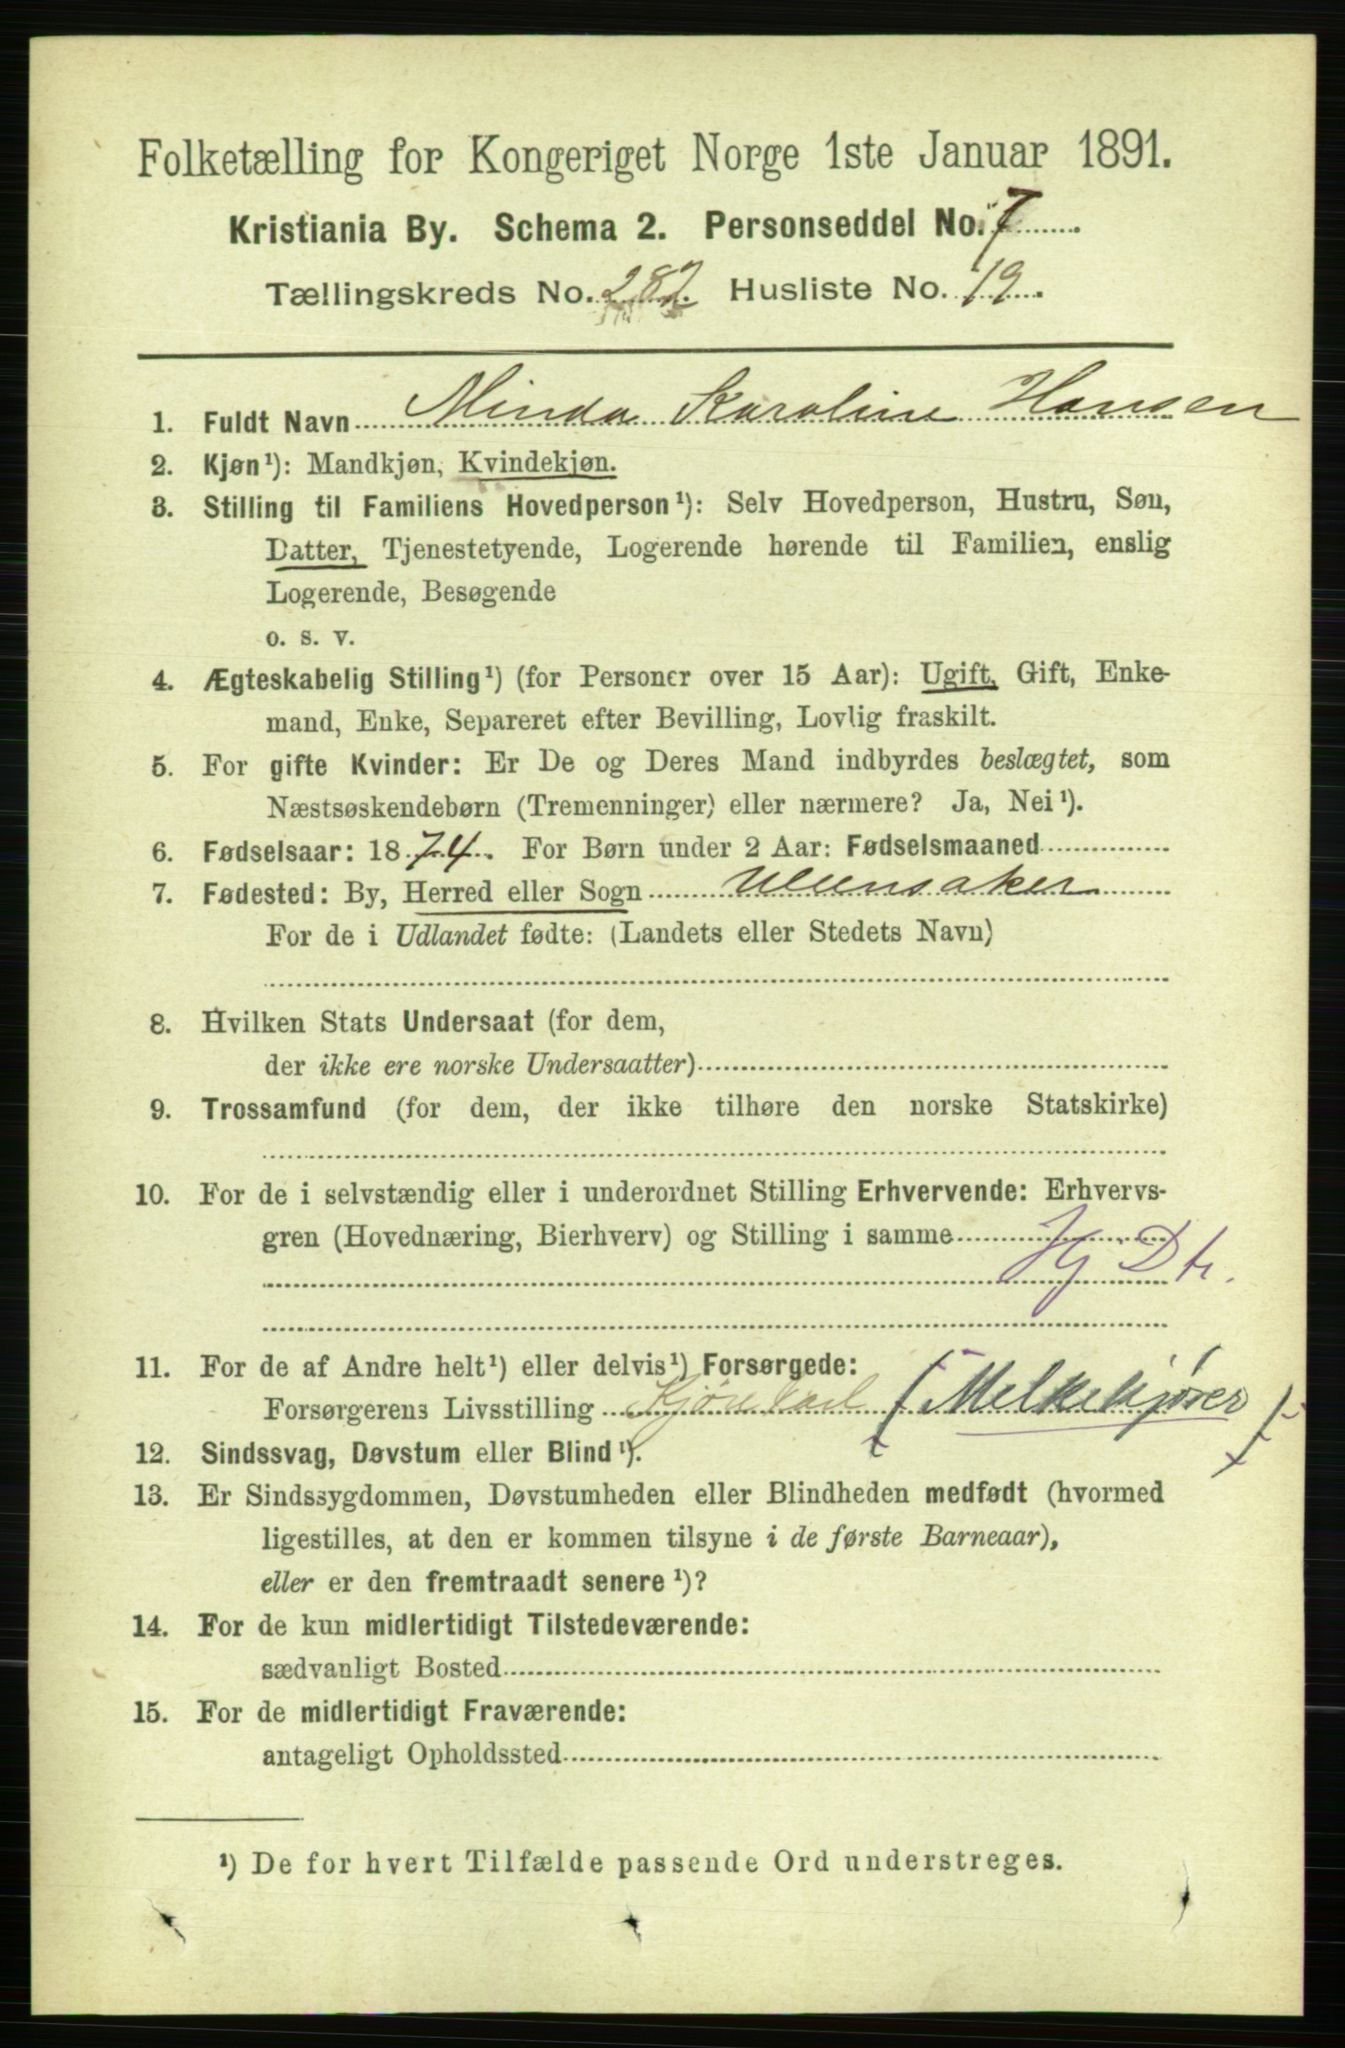 Folketælling for Kongeriget Norge 1ste Januar 1891.
Kristiania By. Schema 2. Personseddel No. 7
Tællingskreds No. 287. Husliste No. 19
1. Fuldt Navn Minda Karoline Hansen
2. Kjøn¹): Mandkjøn, Kvindekjøn.
3. Stilling til Familiens Hovedperson¹): Selv Hovedperson, Hustru, Søn,
Datter, Tjenestetyende, Logerende hørende til Familien, enslig
Logerende, Besøgende
o. s. v.
4. Ægteskabelig Stilling¹) (for Personer over 15 Aar): Ugift, Gift, Enke-
mand, Enke, Separeret efter Bevilling, Lovlig fraskilt.
5. For gifte Kvinder: Er De og Deres Mand indbyrdes beslægtet, som
Næstsøskendebørn (Tremenninger) eller nærmere? Ja, Nei¹).
6. Fødselsaar: 1874. For Børn under 2 Aar: Fødselsmaaned
7. Fødested: By, Herred eller Sogn Ullensaker
For de i Udlandet fødte: (Landets eller Stedets Navn)
8. Hvilken Stats Undersaat (for dem,
der ikke ere norske Undersaatter)
9. Trossamfund (for dem, der ikke tilhøre den norske Statskirke)
10. For de i selvstændig eller i underordnet Stilling Erhvervende: Erhvervs-
gren (Hovednæring, Bierhverv) og Stilling i samme
Hj. Dtr.
11. For de af Andre helt¹) eller delvis¹) Forsørgede:
Forsørgerens Livsstilling Kjørekarl (Melkekjører)
12. Sindssvag, Døvstum eller Blind¹).
13. Er Sindssygdommen, Døvstumheden eller Blindheden medfødt (hvormed
ligestilles, at den er kommen tilsyne i de første Barneaar),
eller er den fremtraadt senere¹)?
14. For de kun midlertidigt Tilstedeværende:
sædvanligt Bosted
15. For de midlertidigt Fraværende:
antageligt Opholdssted
¹) De for hvert Tilfælde passende Ord understreges.